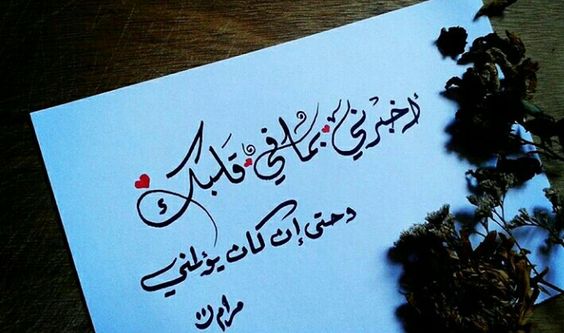 أخبرني بما في قَلبك
وحتى إن كان يؤلمني
مرام ت